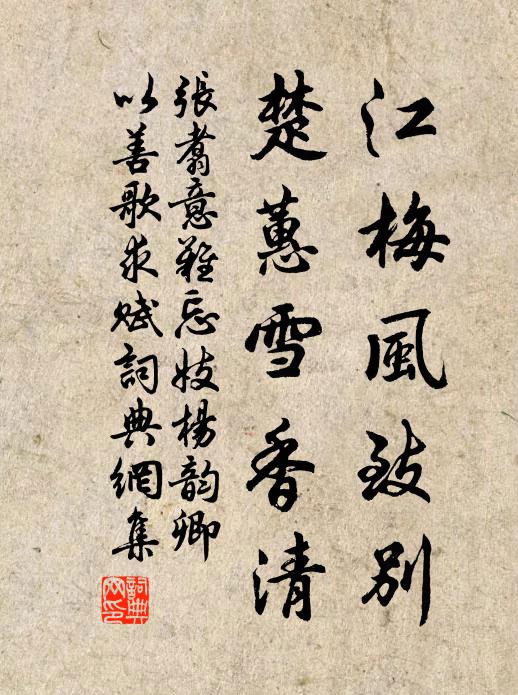 江梅風致別
楚蕙雪香清
張翥意難忘妓楊韵卿
以善歌求賦詞典網集
詞典網印